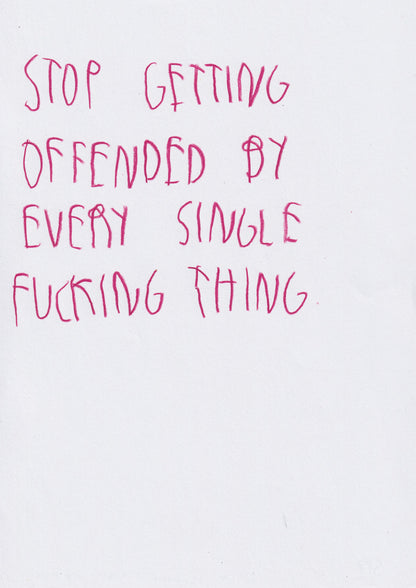 STOP GETTING
OFFENDED BY
EVERY SINGLE
FUCKING THING